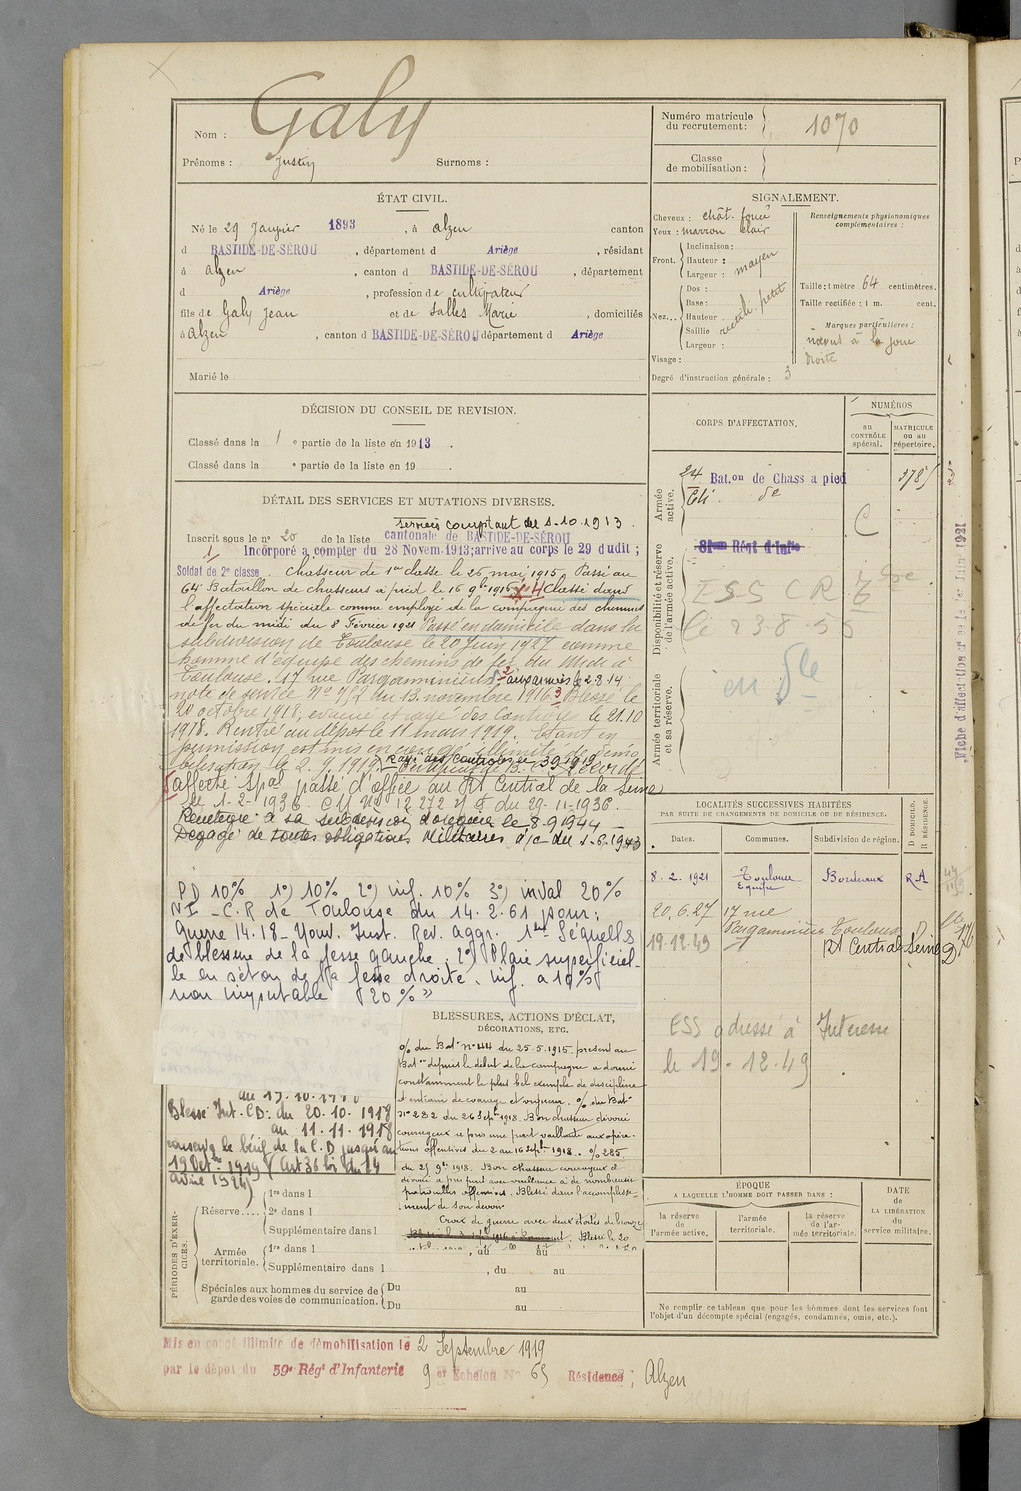 Nom : Galy
Prénoms : Justin Surnoms :
Numéro matricule du recrutement : 1070
Classe de mobilisation :
ÉTAT CIVIL.
Né le 29 Janvier 1893, à Alzen canton
d BASTIDE-DE-SÉROU, département d Ariège, résidant
à Alzen, canton d BASTIDE-DE-SÉROU, département
d Ariège, profession de cultivateur
fils de Galy Jean et de Salles Marie, domiciliés
à Alzen, canton d BASTIDE-DE-SÉROU département d Ariège
Marié le
SIGNALEMENT.
Cheveux : chât. foncé
Yeux : marron clair
Front. Inclinaison :
Hauteur : moyen
Largeur :
Nez... Dos :
Base :
Hauteur rectili. petit
Saillie
Largeur :
Visage :
Renseignements physionomiques complémentaires :
Taille : 1 mètre 64 centimètres.
Taille rectifiée : 1 m. cent.
Marques particulières :
nœvus à la joue
droite
Degré d'instruction générale : 3
DÉCISION DU CONSEIL DE REVISION.
Classé dans la 1 e partie de la liste en 1913.
Classé dans la e partie de la liste en 19 .
DÉTAIL DES SERVICES ET MUTATIONS DIVERSES.
services comptant du 1-10-1913.
Inscrit sous le n° 20 de la liste cantonale de BASTIDE-DE-SÉROU
1 Incorporé a compter du 28 Novem. 1913; arrive au corps le 29 dudit ;
Soldat de 2e classe. Chasseur de 1re classe le 26 mai 1915. Passé au
64e Bataillon de chasseurs à pied le 16 9bre 1915 4 Classé dans
l'affectation spéciale comme employé de la compagnie des chemins
de fer du midi du 8 Février 1921 Passé en domicile dans la
subdivision de Toulouse le 20 Juin 1927 comme
homme d'équipe des chemins de fer du Midi à
Toulouse. 17 rue Pargaminières 2 aux armées le 2 8 14
note de service N° 7/2 du 13 novembre 1916 3 Blessé le
20 octobre 1918, évacué et rayé des Contrôles le 21.10
1918. Rentré au dépôt le 11 mars 1919. Etant en
permission est mis en congé illimité de démo
bilisation le 2.9.1919. Rayé des Controles le 3 9 1919
5 affecté Spal passé d'office au Rt Central de la Seine
le 1-2-1936. C M N° 12 272 du 29-11-1936.
Réintégré à sa subdivision d'origine le 8.9.1944
Dégagé de toutes obligations militaires d/c du
PD 10% 1°) 10% 2°) inf. 10% 3°) inval 20%
C.R de Toulouse du 14.2.61 pour:
Guerre 14.18 - Nouv. Inst. Rev. aggr. 1° Séquelles
de blessure de la fesse gauche. 2°) Plaie superficiel-
le en séton de la fesse droite. inf. à 10%
non imputable 20% "
CORPS D'AFFECTATION.
NUMÉROS
au CONTRÔLE spécial.
MATRICULE ou au répertoire.
Armée active.
24 Bat.on de Chass a pied
Disponibilité et réserve de l'armée active.
81eme Régt d'Infie
C
ESS C R
le 23-8-55
Armée territoriale et sa réserve.
Fiche d'affectation
LOCALITÉS SUCCESSIVES HABITÉES
PAR SUITE DE CHANGEMENTS DE DOMICILE OU DE RÉSIDENCE.
Dates. Communes. Subdivision de région. D DOMICILE. R RÉSIDENCE.
8.2.1921 Toulouse Bordeaux R.A
Equipe
20.6.27 17 rue
Pargaminières Toulouse
19.12.49 Rt Central Seine D
ESS adressé à Intéressé
le 19-12-49
BLESSURES, ACTIONS D'ÉCLAT,
DÉCORATIONS, ETC.
O/ du Bat. n° 144 du 25.5.1915. présent au
Baton depuis le début de la campagne a donné
constamment le plus bel exemple de discipline
d'entrain de courage et vigueur. O/ du Bat
N° 282 du 26 Septbre 1918. Bon chasseur dévoué
courageux a pris une part vaillante aux opéra-
tions offensives du 2 au 16 Septbre 1918. O/ 285
du 25 9bre 1918. Bon chasseur courageux et
dévoué a pris part avec vaillance à de nombreuses
patrouilles offensives. Blessé dans l'accomplisse-
ment de son devoir
Croix de guerre avec deux étoiles de bronze
Blessé le 20
Blessé Int. CD: du 20.10.1918
au 11.11.1918
conserve le bénéf de la C.D jusqu'au
19 Oct 1919 (Art 36 loi du 14
avril 1924)
PÉRIODES D'EXERCICES.
Réserve..... 1re dans l
2e dans l
Supplémentaire dans l
Armée territoriale. 1re dans l
, du au
Supplémentaire dans l , du au
Spéciales aux hommes du service de garde des voies de communication. Du au
Du au
ÉPOQUE
A LAQUELLE L'HOMME DOIT PASSER DANS :
la réserve de l'armée active.
l'armée territoriale.
la réserve de l'armée territoriale.
DATE de LA LIBÉRATION du service militaire.
Ne remplir ce tableau que pour les hommes dont les services font
l'objet d'un décompte spécial (engagés, condamnés, omis, etc.).
Mis en congé illimité de démobilisation le 2 Septembre 1919
par le dépôt du 59e Régt d'Infanterie 9 er Echelon N° 65 Résidence ; Alzen